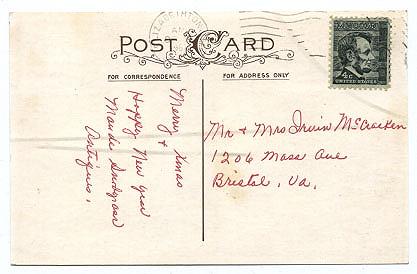 POST CARD
FOR CORRESPONDENCE
FOR ADDRESS ONLY
LINCOLN
4c
UNITED STATES
Merry Xmas
&
Happy New year
Maude
Antiques.
Mr & Mrs Irvin McCracken
1206 Mass Ave
Bristol, Va.